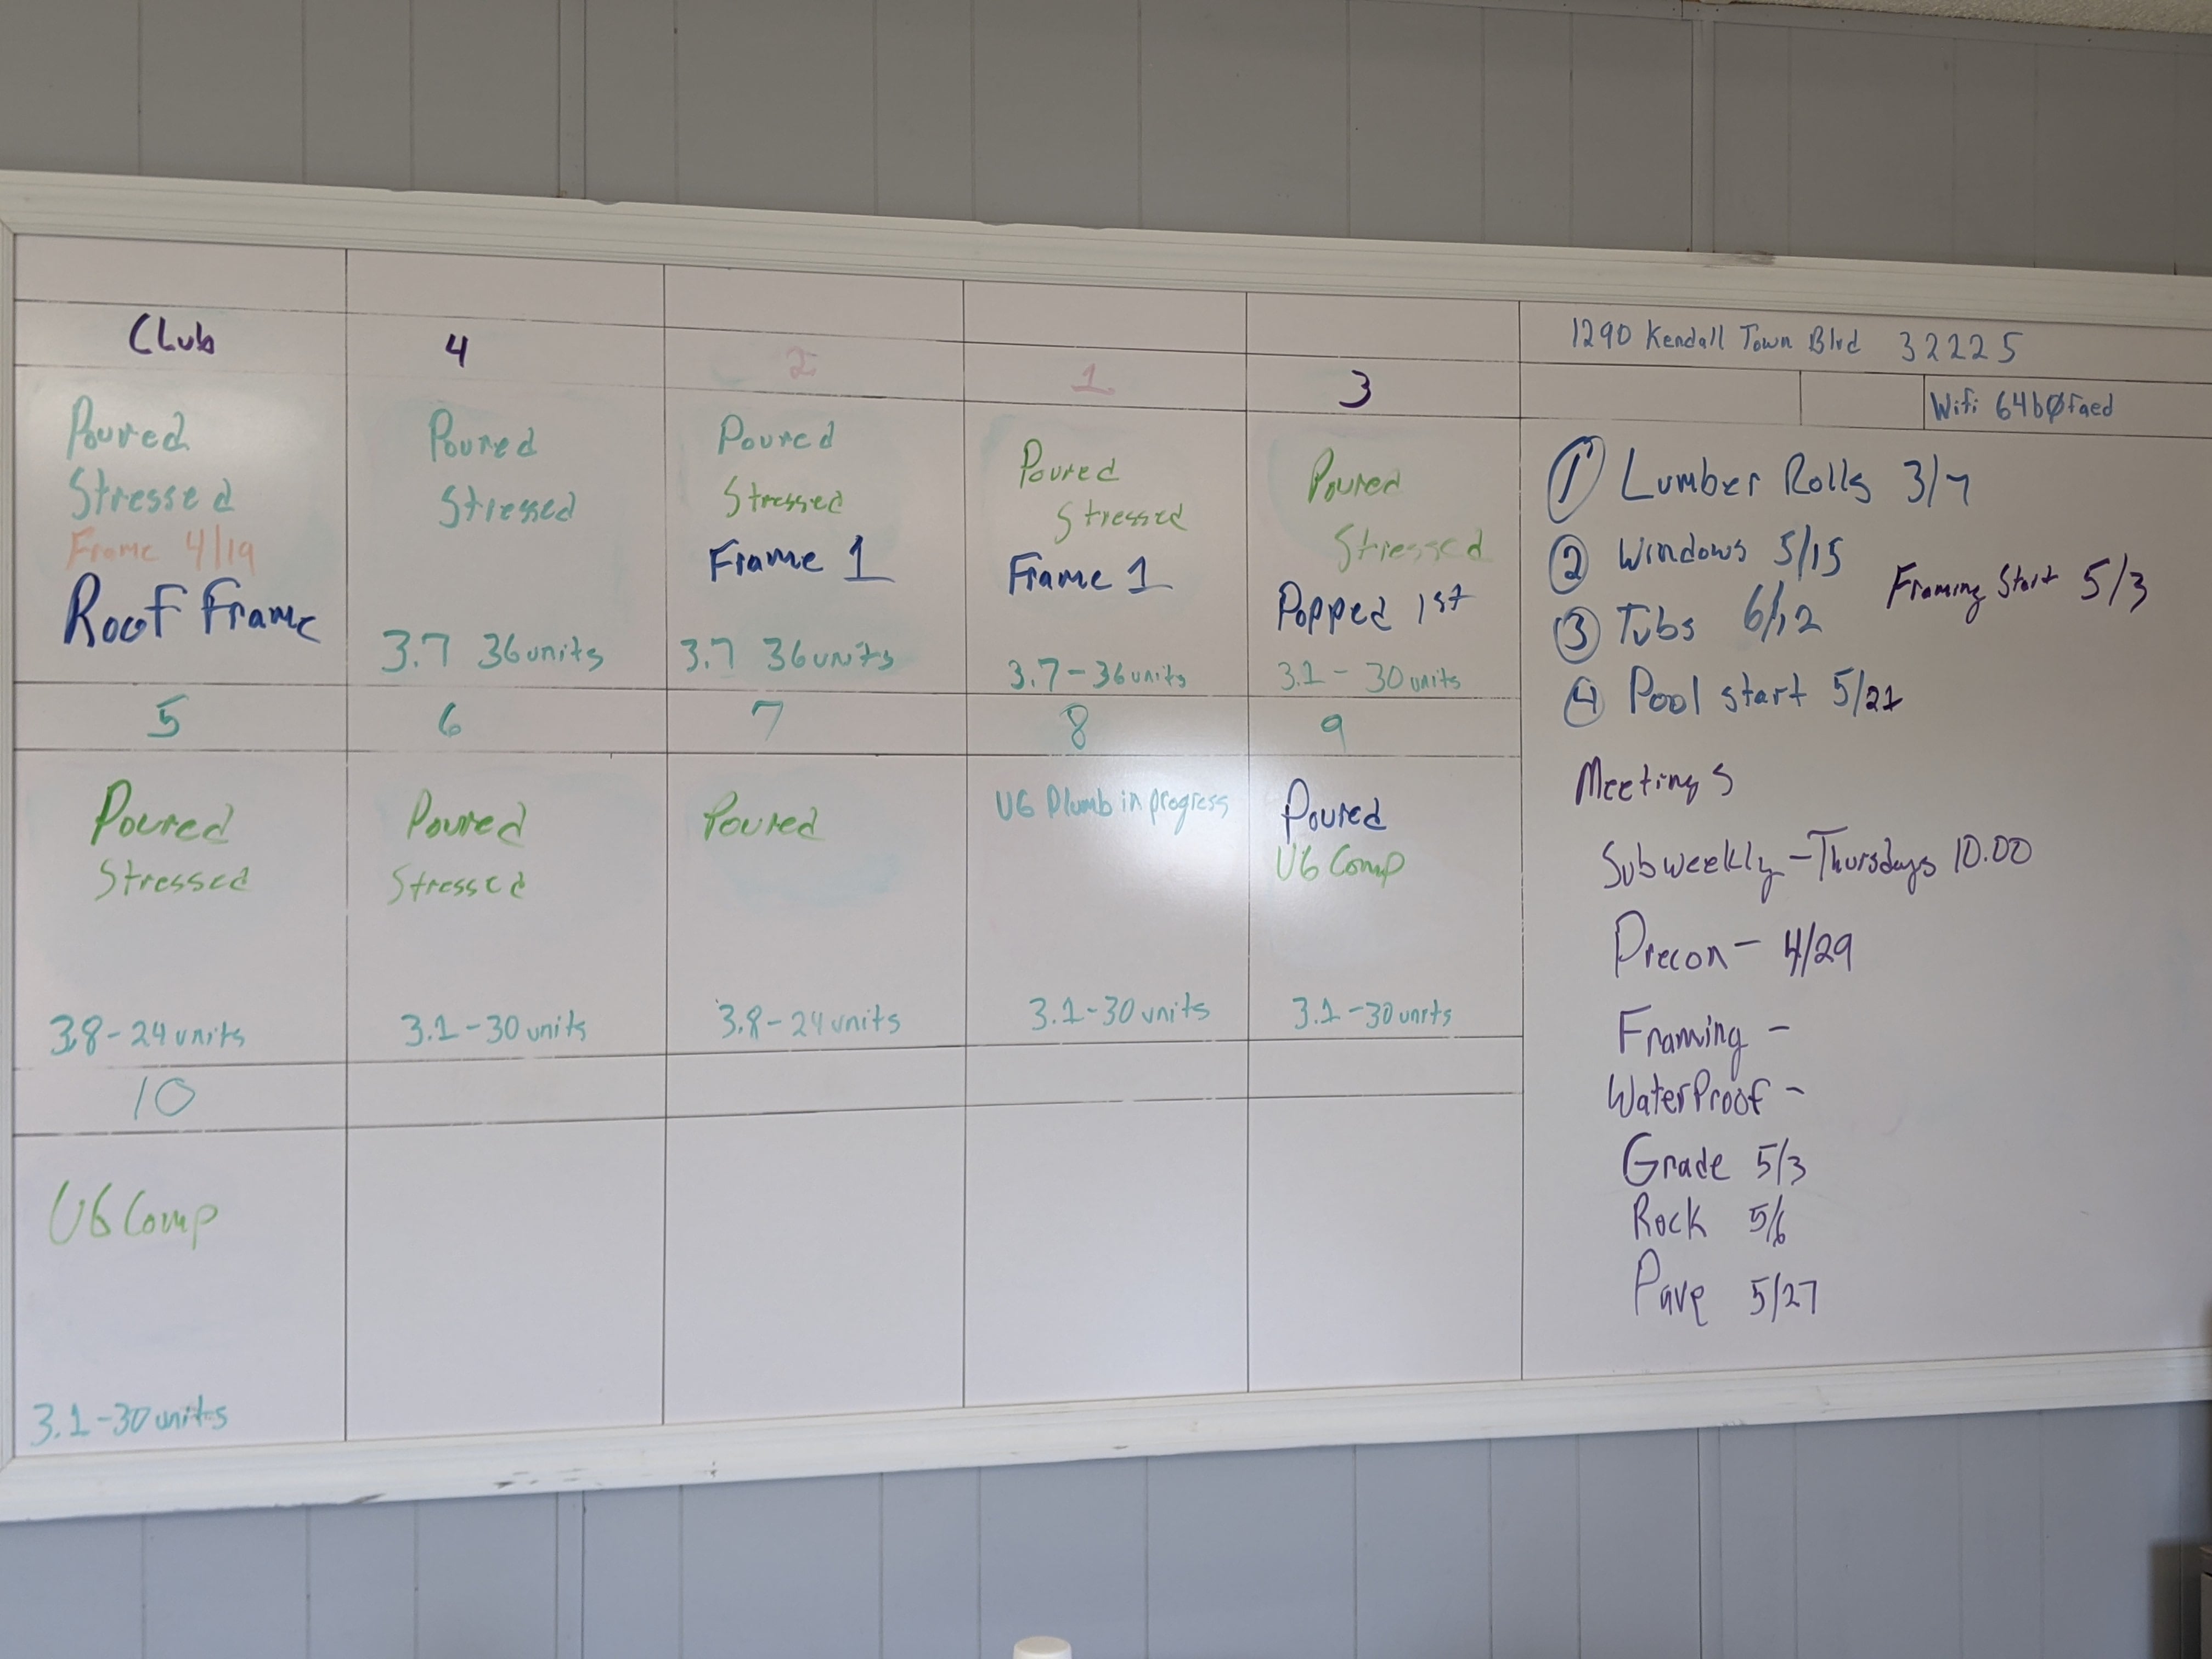 Club
4
2
1
3
Poured
Stressed
Frame 4/19
Roof Frame
Poured
Stressed
3.7 36units
Poured
Stressed
Frame 1
3.7 36units
Poured
Stressed
Frame 1
3.7-36units
Poured
Stressed
Popped 1st
3.1-30units
5
6
7
8
9
Poured
Stressed
3.8-24units
Poured
Stressed
3.1-30units
Poured
3.8-24units
UG Plumb in progress
3.1-30units
Poured
UG Comp
3.1-30units
10
UG Comp
3.1-30units
1290 Kendall Town Blvd 32225
Wifi 64b0faed
1 Lumber Rolls 3/7
2 Windows 5/15
Framing Start 5/3
3 Tubs 6/12
4 Pool start 5/21
Meetings
Subweekly-Thursdays 10.00
Precon- 4/29
Framing -
WaterProof -
Grade 5/3
Rock 5/6
Pave 5/27